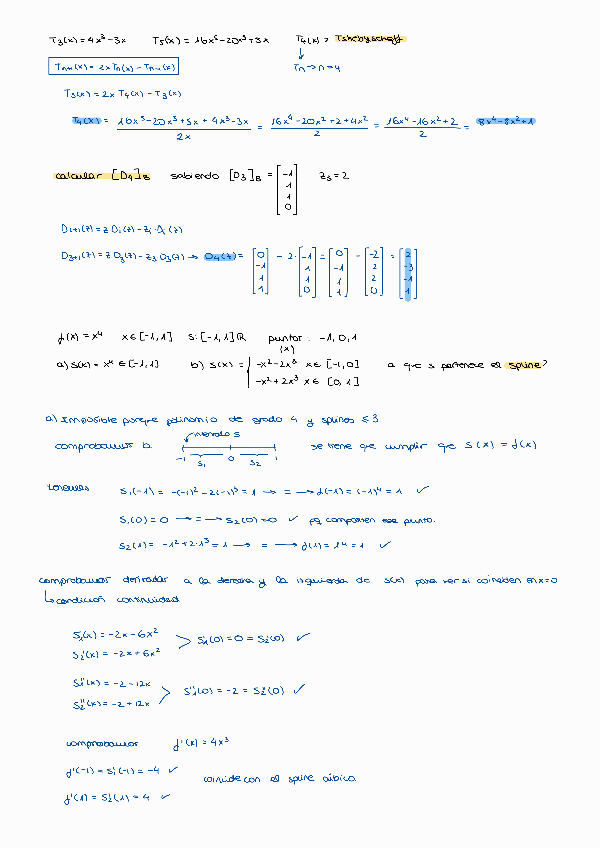 T₃(x) = 4x³ - 3x    T₅(x) = 16x⁵ - 20x³ + 5x    T₄(x)? Tshebyscheff
Tₙ₊₁(x) = 2xTₙ(x) - Tₙ₋₁(x)    Tₙ → n=4
T₅(x) = 2x T₄(x) - T₃(x)
T₄(x) = (16x⁵ - 20x³ + 5x + 4x³ - 3x)/2x = (16x⁴ - 20x² + 2 + 4x²)/2 = (16x⁴ - 16x² + 2)/2 = 8x⁴ - 8x² + 1
calcular [D₄]B sabiendo [D₃]B = [-1 1 1 0] z₃ = 2
Dᵢ₊₁(z) = z Dᵢ(z) - zᵢ · Dᵢ(z)
D₃₊₁(z) = z D₃(z) - z₃ D₃(z) → D₄(z) = [0 -1 1 1] - 2 · [-1 1 1 0] = [0 -1 1 1] - [-2 2 2 0] = [2 -3 -1 1]
f(x) = x⁴    x ∈ [-1,1]    s: [-1,1] ℝ    puntos: -1, 0, 1
(x)
a) s(x) = x⁴ ∈ [-1,1]    b) s(x) = { -x² - 2x³ x ∈ [-1,0]    a que s pertenece el spline?
-x² + 2x³ x ∈ [0,1]
a) Imposible porque polinomio de grado 4 y splines ≤ 3
intervalo s
comprobamos b.    -1 0 1    se tiene que cumplir que s(x) = f(x)
s₁ s₂
Entonces    s₁(-1) = -(-1)² - 2(-1)³ = 1 → = → f(-1) = (-1)⁴ = 1 ✓
s₁(0) = 0 → = → s₂(0) = 0 ✓ pq comparten ese punto.
s₂(1) = -1² + 2·1³ = 1 → = → f(1) = 1⁴ = 1 ✓
comprobamos derivadas a la derecha y la izquierda de s(x) para ver si coinciden en x=0
↳ condición continuidad
s₁'(x) = -2x - 6x²
s₁'(0) = 0 = s₂'(0) ✓
s₂'(x) = -2x + 6x²
s₁''(x) = -2 - 12x
s₁''(0) = -2 = s₂''(0) ✓
s₂''(x) = -2 + 12x
comprobamos    f'(x) = 4x³
f'(-1) = s₁'(-1) = -4 ✓
coincide con el spline cúbico
f'(1) = s₂'(1) = 4 ✓